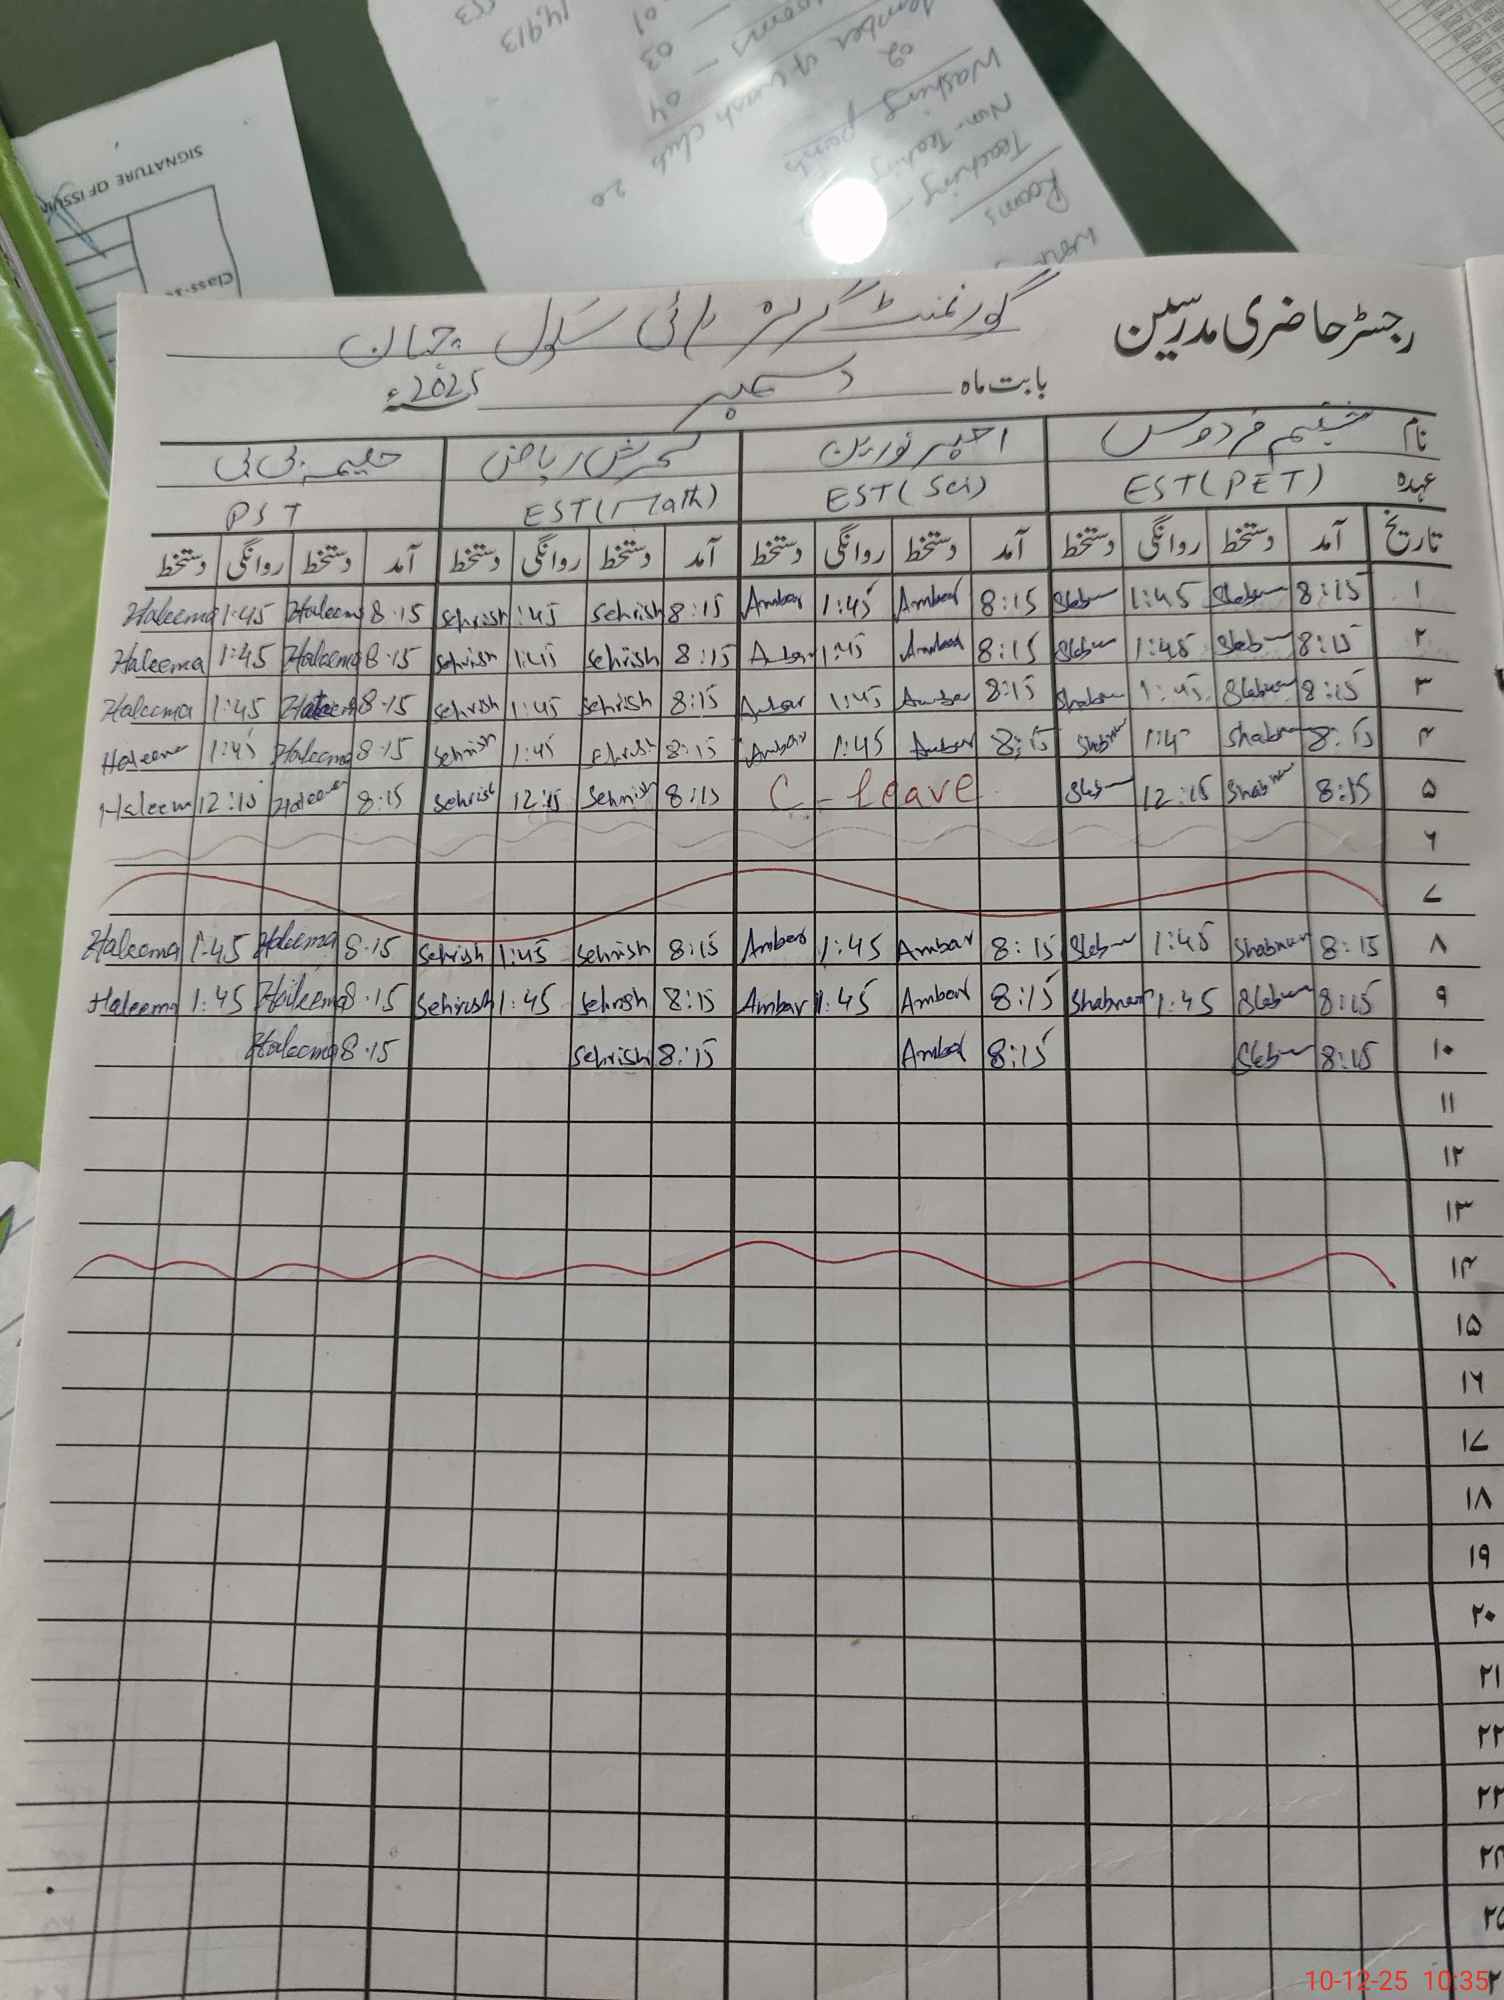 SIGNATURE OF ISSUING
Class
14,913
01
03
04
02
20
Number of wash club
Washing points
Non-Teaching
Teaching
Rooms
رجسٹر حاضری مدرسین
گورنمنٹ گرلز ہائی سکول
بابت ماہ دسمبر 2025ء
نام شبنم فردوس سحرش ریاض حلیمہ بی بی
عہدہ EST(PET) EST(Sci) EST(Math) PST
تاریخ آمد دستخط روانگی دستخط آمد دستخط روانگی دستخط آمد دستخط روانگی دستخط آمد دستخط روانگی دستخط
۱ 8:15 Shabnam 1:45 Shabnam 8:15 Ambar 1:45 Ambar 8:15 Sehrish 1:45 Sehrish 8:15 Haleema 1:45 Haleema
۲ 8:15 Shabnam 1:45 Shabnam 8:15 Ambar 1:45 Ambar 8:15 Sehrish 1:45 Sehrish 8:15 Haleema 1:45 Haleema
۳ 8:15 Shabnam 1:45 Shabnam 8:15 Ambar 1:45 Ambar 8:15 Sehrish 1:45 Sehrish 8:15 Haleema 1:45 Haleema
۴ 8:15 Shabnam 1:4 Shabnam 8:15 Ambar 1:45 Ambar 8:15 Sehrish 1:45 Sehrish 8:15 Haleema 1:45 Haleema
۵ 8:15 Shabnam 12:15 Shabnam C-leave 8:15 Sehrish 12:15 Sehrish 8:15 Haleema 12:15 Haleem
۶
۷
۸ 8:15 Shabnam 1:45 Shabnam 8:15 Ambar 1:45 Ambar 8:15 Sehrish 1:45 Sehrish 8:15 Haleema 1:45 Haleema
۹ 8:15 Shabnam 1:45 Shabnam 8:15 Ambar 1:45 Ambar 8:15 Sehrish 1:45 Sehrish 8:15 Haleema 1:45 Haleema
۱۰ 8:15 Shabnam 8:15 Ambar 8:15 Sehrish 8:15 Haleema
۱۱
۱۲
۱۳
۱۴
۱۵
۱۶
۱۷
۱۸
۱۹
۲۰
۲۱
۲۲
۲۳
۲۴
۲۵
10-12-25 10:35